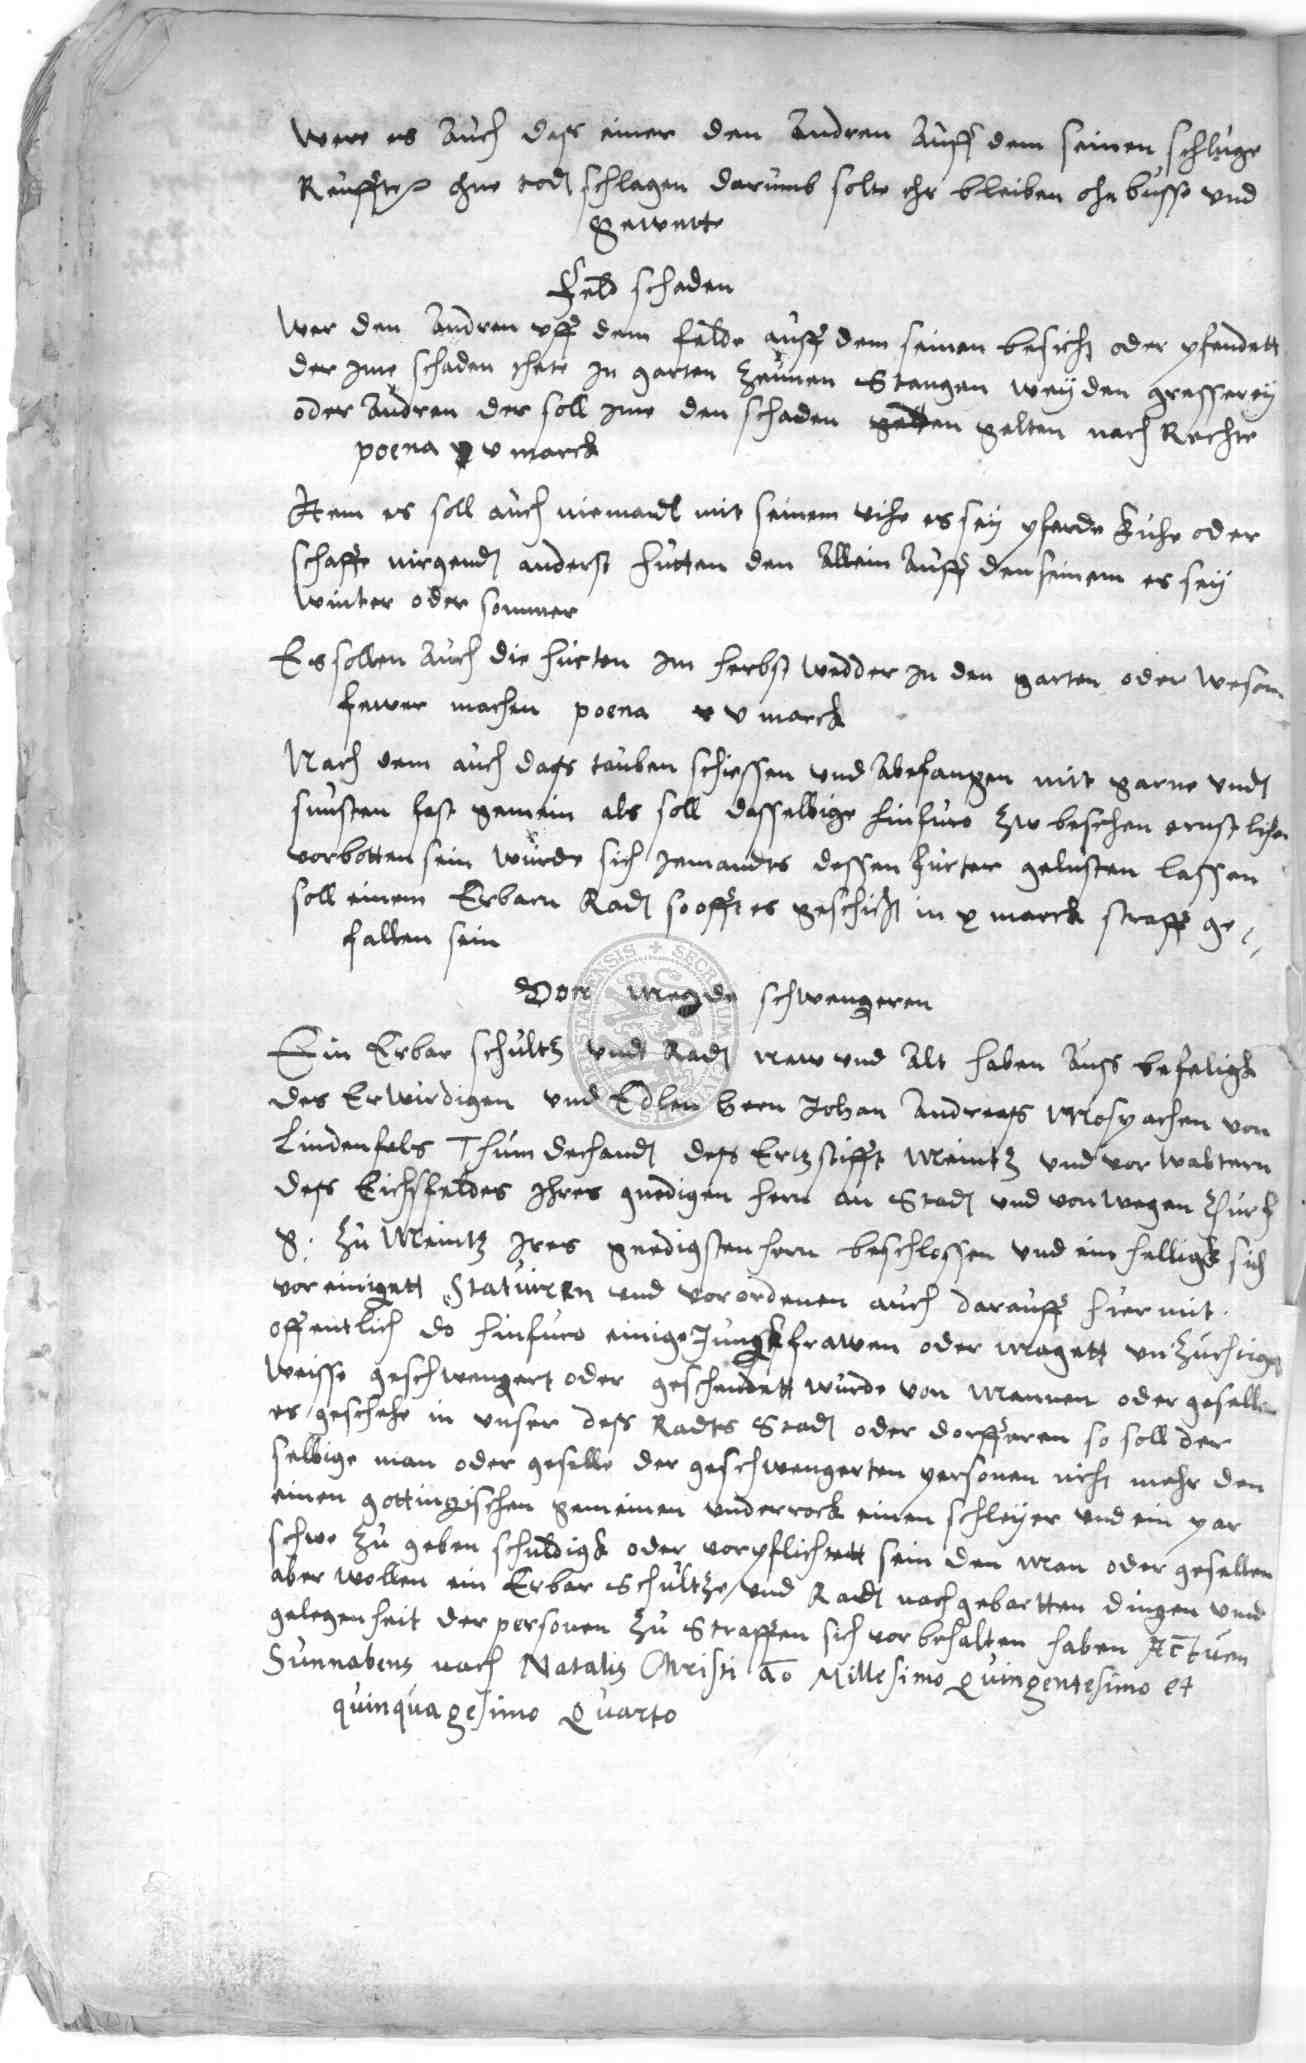 Were es Auch dass einer den Andren Auff dem seinen schluge
Reuffte ohne todtschlagen darumb solte ehr bleiben ohn busse vnd
gewette
Feld schaden
Wer den Andren vff dem felde auff dem seinen besicht oder pfendett
der Ime schaden thete In garten Zeunen Stangen weyden gresserey
oder Andren der soll Ime den schaden gelten nach Rechte
poena v marck
Item es soll auch niemandt mit seinem vihe es sey pferde kuhe oder
schaffe nirgendt anderst hutten den Allein Auff den seinem es sey
winter oder sommer
Es sollen Auch die hirten Im herbst wedder In den garten oder wesen
fewer machen poena v marck
Nach dem auch dass tauben schiessen vnd Abefangen mit garne vndt
sunsten fast gemein als soll dasselbige hinfuro zw beschen ernstlichen
vorbotten sein wurde sich Jemandts dessen hirter gelusten lassen
soll einem Erbarn Radt so offt es geschicht in x marck straff ge
fallen sein
Von Megde schwengeren
Ein Erbar schultz vndt Radt New vnd Alt haben Auss befeligk
des Erwirdigen vnd Edlen hern Johan Andreass Mospachen von
Lindenfels Thumdechandt dess Ertzstifft Meintz vnd vorwaltern
dess Eichsfeldes Ihres gnedigen hern an Stadt vnd von wegen Churf
g. zu Meintz Ires gnedigsten hern beschlossen vnd einhelligk sich
voreinigett Statuiren vnd vorordenen auch darauff hiermit
offentlich do hinfuro einige Jungkfrawen oder Magett vnzuchtiger
weisse geschwengert oder geschendett wurde von Mannen oder gesellen
es geschehe in vnser dess Radts Stadt oder dorfferen so soll der
selbige man oder geselle der geschwengerten personen nicht mehr den
einen gottingischen gemeinen vnderrock einen schleyer vnd ein par
schwe zu geben schuldigk oder vorpflichtett sein den Man oder gesellen
aber wollen ein Erbar Schultze vnd Radt nach gebartten dingen vnnd
gelegenheit der personen zu Straffen sich vorbehalten haben Actum
Sunnabents nach Natalis Christi ao Millesimo Quingentesimo et
quinquagesimo Quarto